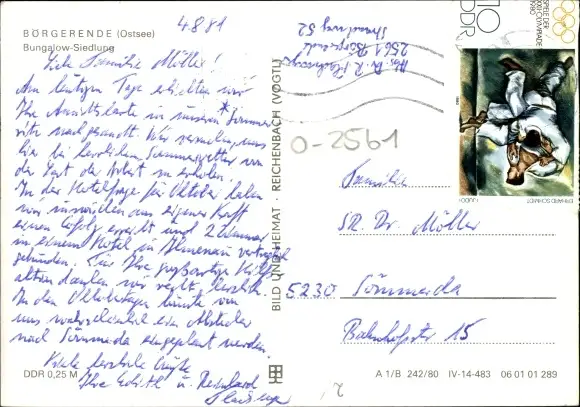 BÖRGERENDE (Ostsee)
Bungalow-Siedlung
4.8.81
Liebe Familie Möller!
Am heutigen Tage erhielten wir
Ihre Ansichtskarte in unseren Sommer-
sitz nachgesandt. Wir
hier bei herrlichem Sommerwetter von
der Last der Arbeit zu erholen.
In der Hotelfrage für Oktober haben
wir inzwischen aus eigener Kraft
einen Erfolg erreicht und 2 Zimmer
in einem Hotel in Ilmenau vertraglich
gebunden. Für Ihre großartige Hilfe
danken wir recht herzlich.
In den Oktobertagen könnte von
uns wahrscheinlich ein Abstecher
nach Sömmerda eingeplant werden.
Viele herzliche Grüße
Ihre Edith u. Reinhard
DDR 0,25 M
BILD UND HEIMAT · REICHENBACH (VOGTL)
Abs. Dr. R.
2561 Börgerende
Strandweg 52
O-2561
10
DDR
SPIELE DER
XXII. OLYMPIADE
1980
ERHARD SCHMIDT
JUDO
Familie
SR. Dr. Möller
5230 Sömmerda
Bahnhofstr. 15
A 1/B 242/80 IV-14-483 06 01 01 289